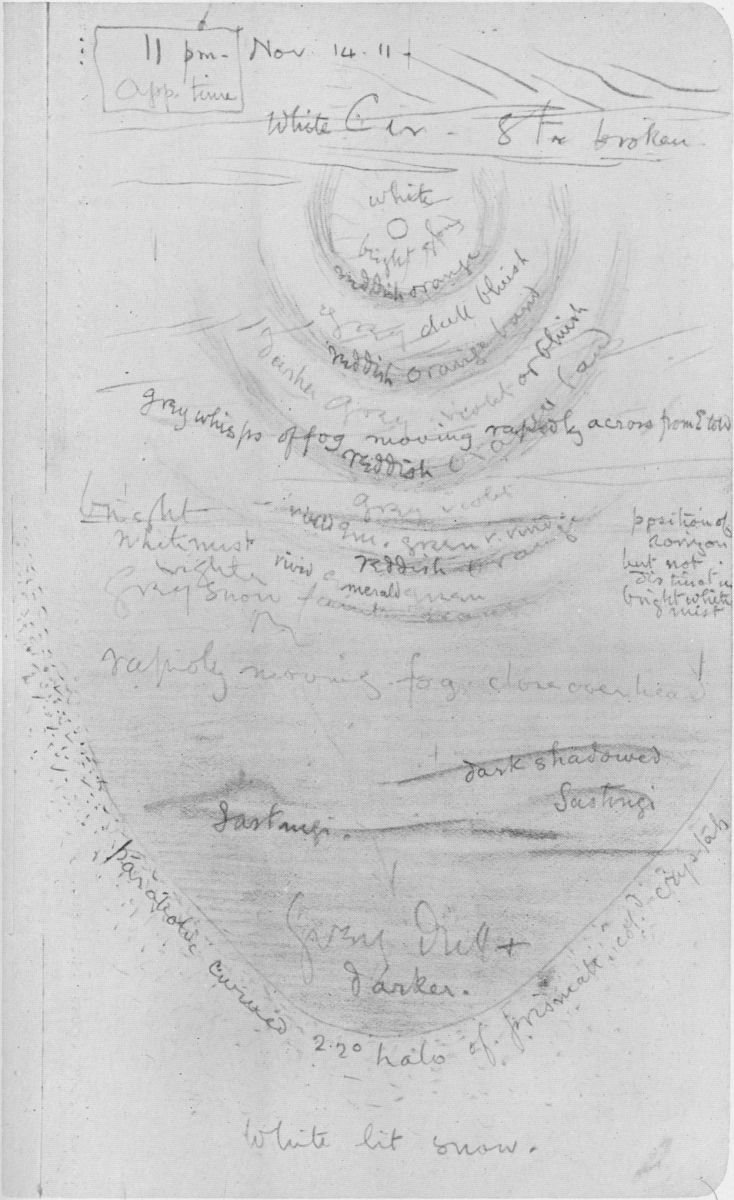 11 pm. Nov. 14. 11
App. time
White Cir. - 8 broken.
white
bright fog
reddish orange
grey dull bluish
reddish orange band
darker grey violet or bluish
grey whisps of fog moving rapidly across from E to W
reddish orange band
grey violet
bright
vivid green
position of
horizon
but not
distinct in
bright white
mist
white mist
reddish orange
vivid emerald green
lighter
grey snow faint
rapidly moving fog close overhead
dark shadowed
Sastrugi
Sastrugi.
Grey Dull +
darker.
parabolic curved 22° halo of prismatic cold crystals
White lit snow.